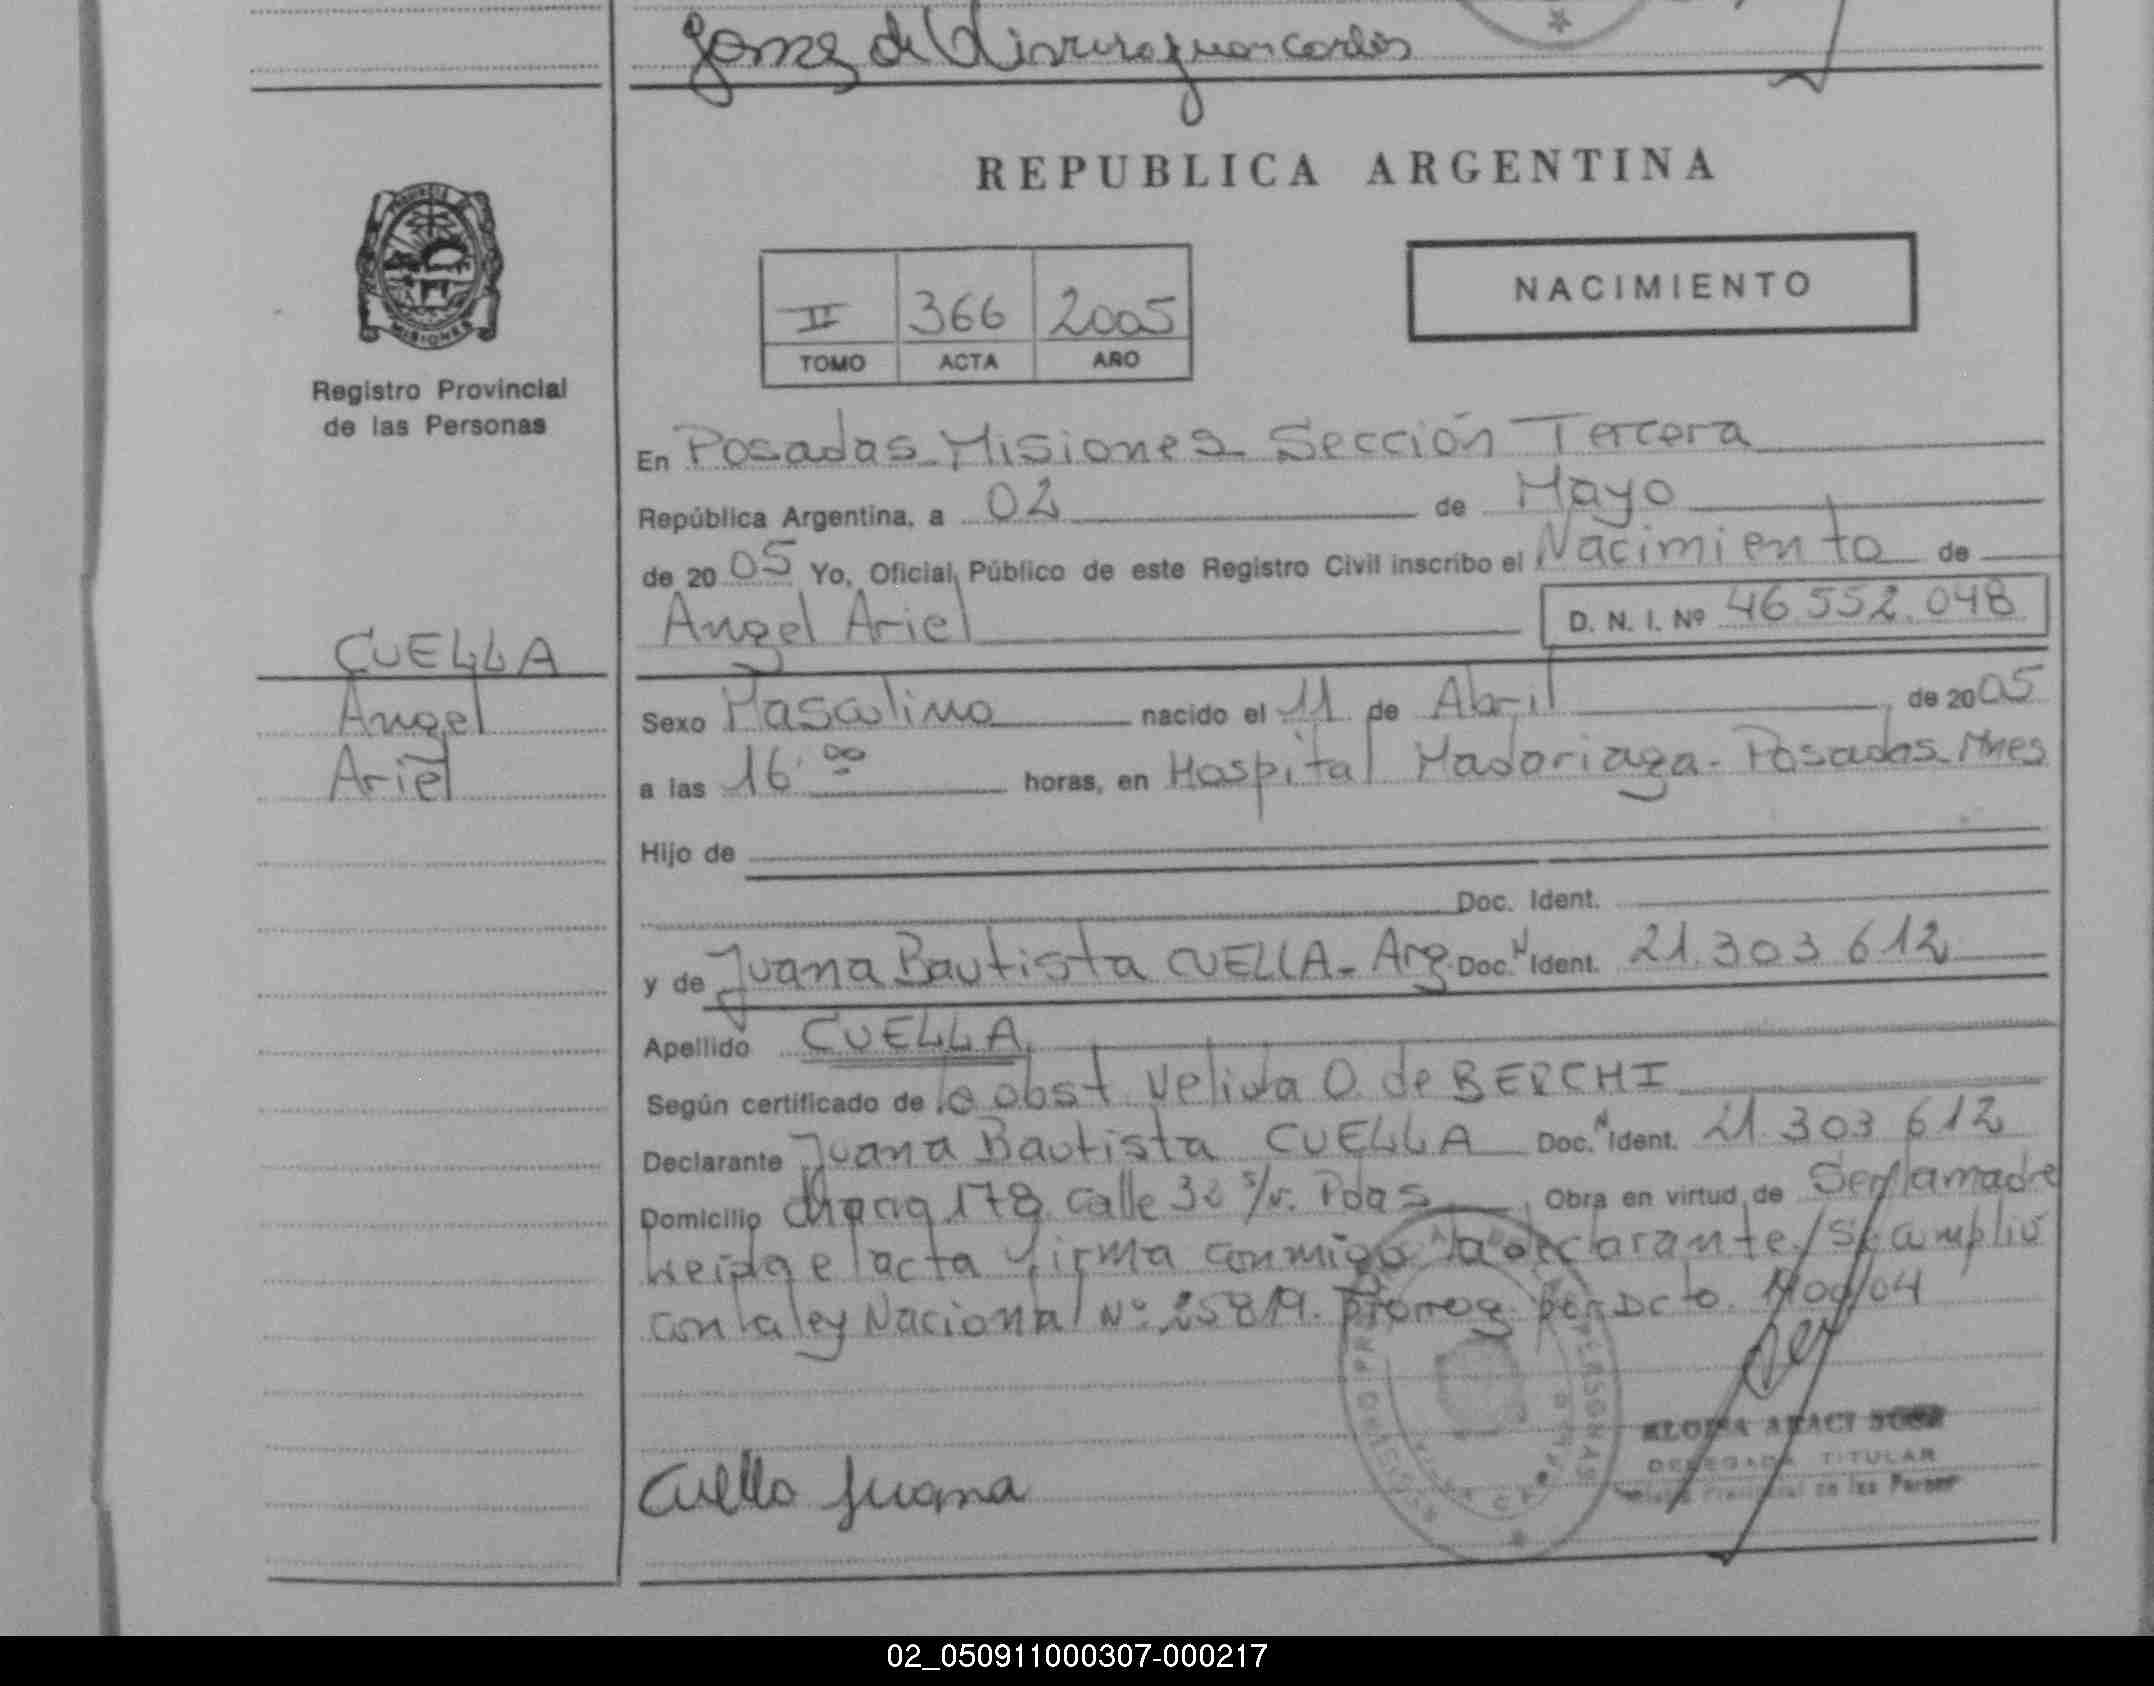 Gomez de Olivera Juan Carlos
REPUBLICA ARGENTINA
MISIONES
Registro Provincial
de las Personas
NACIMIENTO
II 366 2005
TOMO ACTA AÑO
En Posadas Misiones Sección Tercera
República Argentina, a 02 de Mayo
de 2005 Yo, Oficial Público de este Registro Civil inscribo el Nacimiento de
Angel Ariel D. N. I. Nº 46.552.048
CUELLA
Angel
Ariel
Sexo Masculino nacido el 11 de Abril de 2005
a las 16.00 horas, en Hospital Madariaga - Posadas Mnes
Hijo de
Doc. Ident.
y de Juana Bautista CUELLA - Arg. Doc. N Ident. 21.303.612
Apellido CUELLA
Según certificado de la obst Velida O. de BERCHI
Declarante Juana Bautista CUELLA Doc. N Ident. 21.303.612
Domicilio 178 calle 32 s/n. Pdas Obra en virtud de Ser la madre
Leida el acta firma conmigo la declarante/ Se cumplió
con la ley Nacional Nº 25819. prorrog. por Dcto. /04
Cuella Juana
DELEGADA TITULAR
02_050911000307-000217